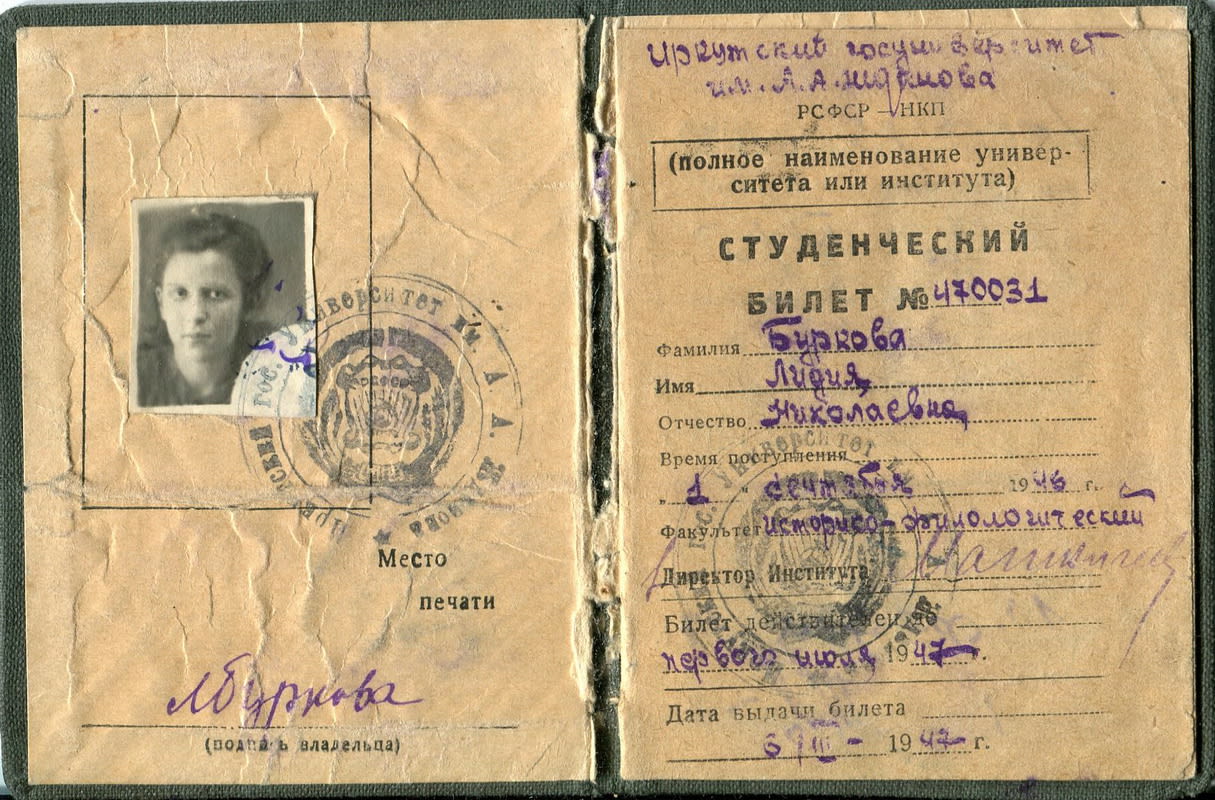 Иркутский гос. Университет им. А. А. Жданова
Место
печати
ЛБуркова
(подпись владельца)
Иркутский госуниверситет
им. А. А. Жданова
РСФСР — НКП
(полное наименование универ-
ситета или института)
СТУДЕНЧЕСКИЙ
БИЛЕТ № 470031
Фамилия Буркова
Имя Лидия
Отчество Николаевна
Время поступления
„ 1 " сентября 1946 г.
Факультет историко-филологический
Директор Института
Билет действителен до
первого июля 1947 г.
Дата выдачи билета
6/III - 1947 г.